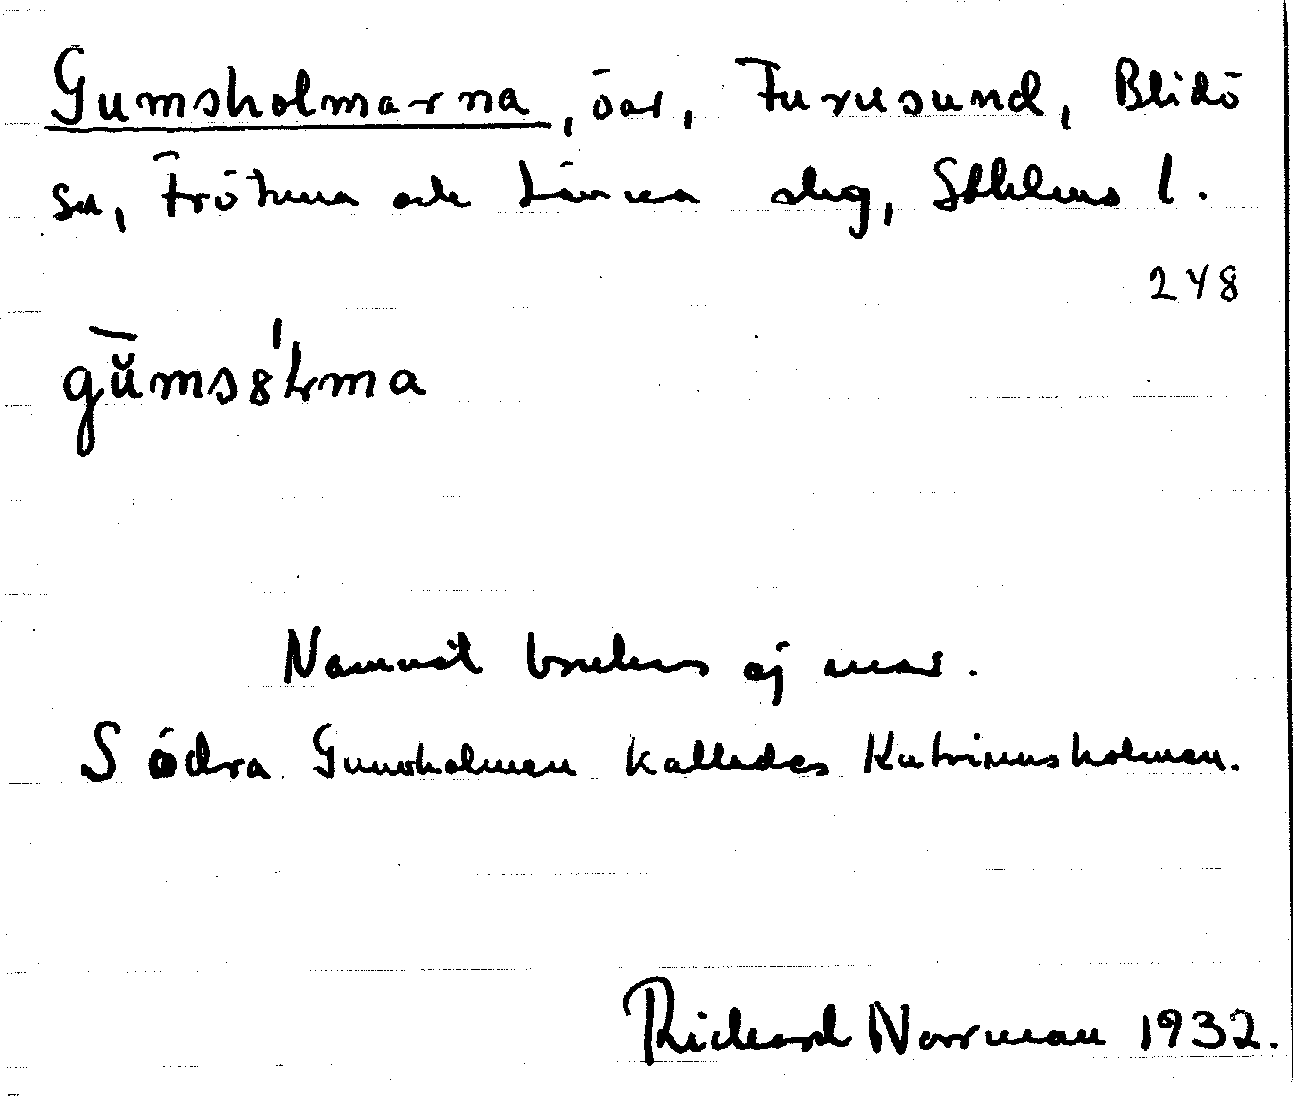 Gumsholmarna, öar, Furusund, Blidö
sn, Frötuna och Länna slg, Sthlms l.
248
Namnet brukas ej mer.
Södra Gumsholmen kallades Katrinusholmen.
Richard Norrman 1932.